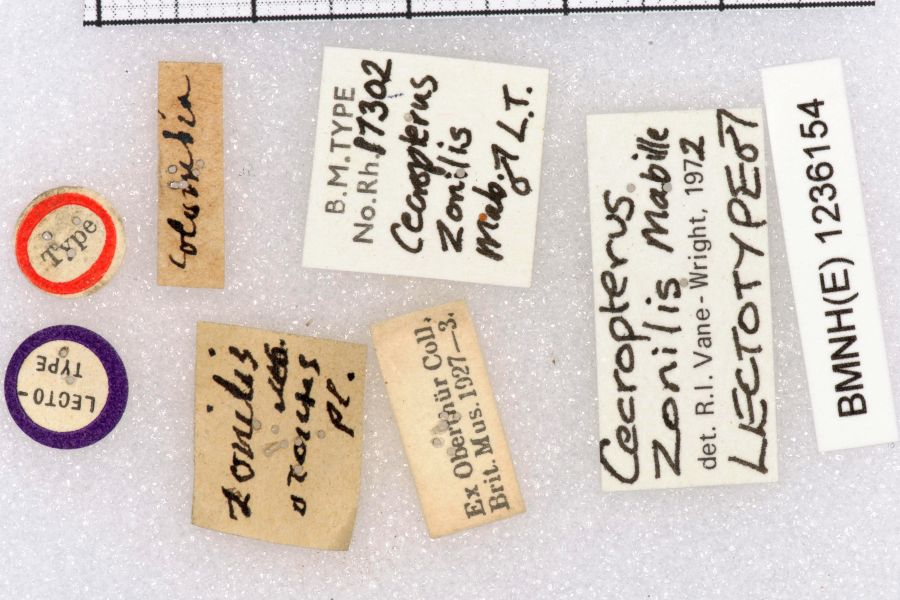 Type
LECTO-
TYPE
Colombia
zonilis
Pl.
B.M.TYPE
No.Rh.17302
Cecropterus
zonilis
Mab. ♂ L.T.
Ex Oberthür Coll.
Brit. Mus. 1927—3.
Cecropterus
zonilis Mabille
det. R.I. Vane-Wright, 1972
LECTOTYPE ♂
BMNH(E) 1236154